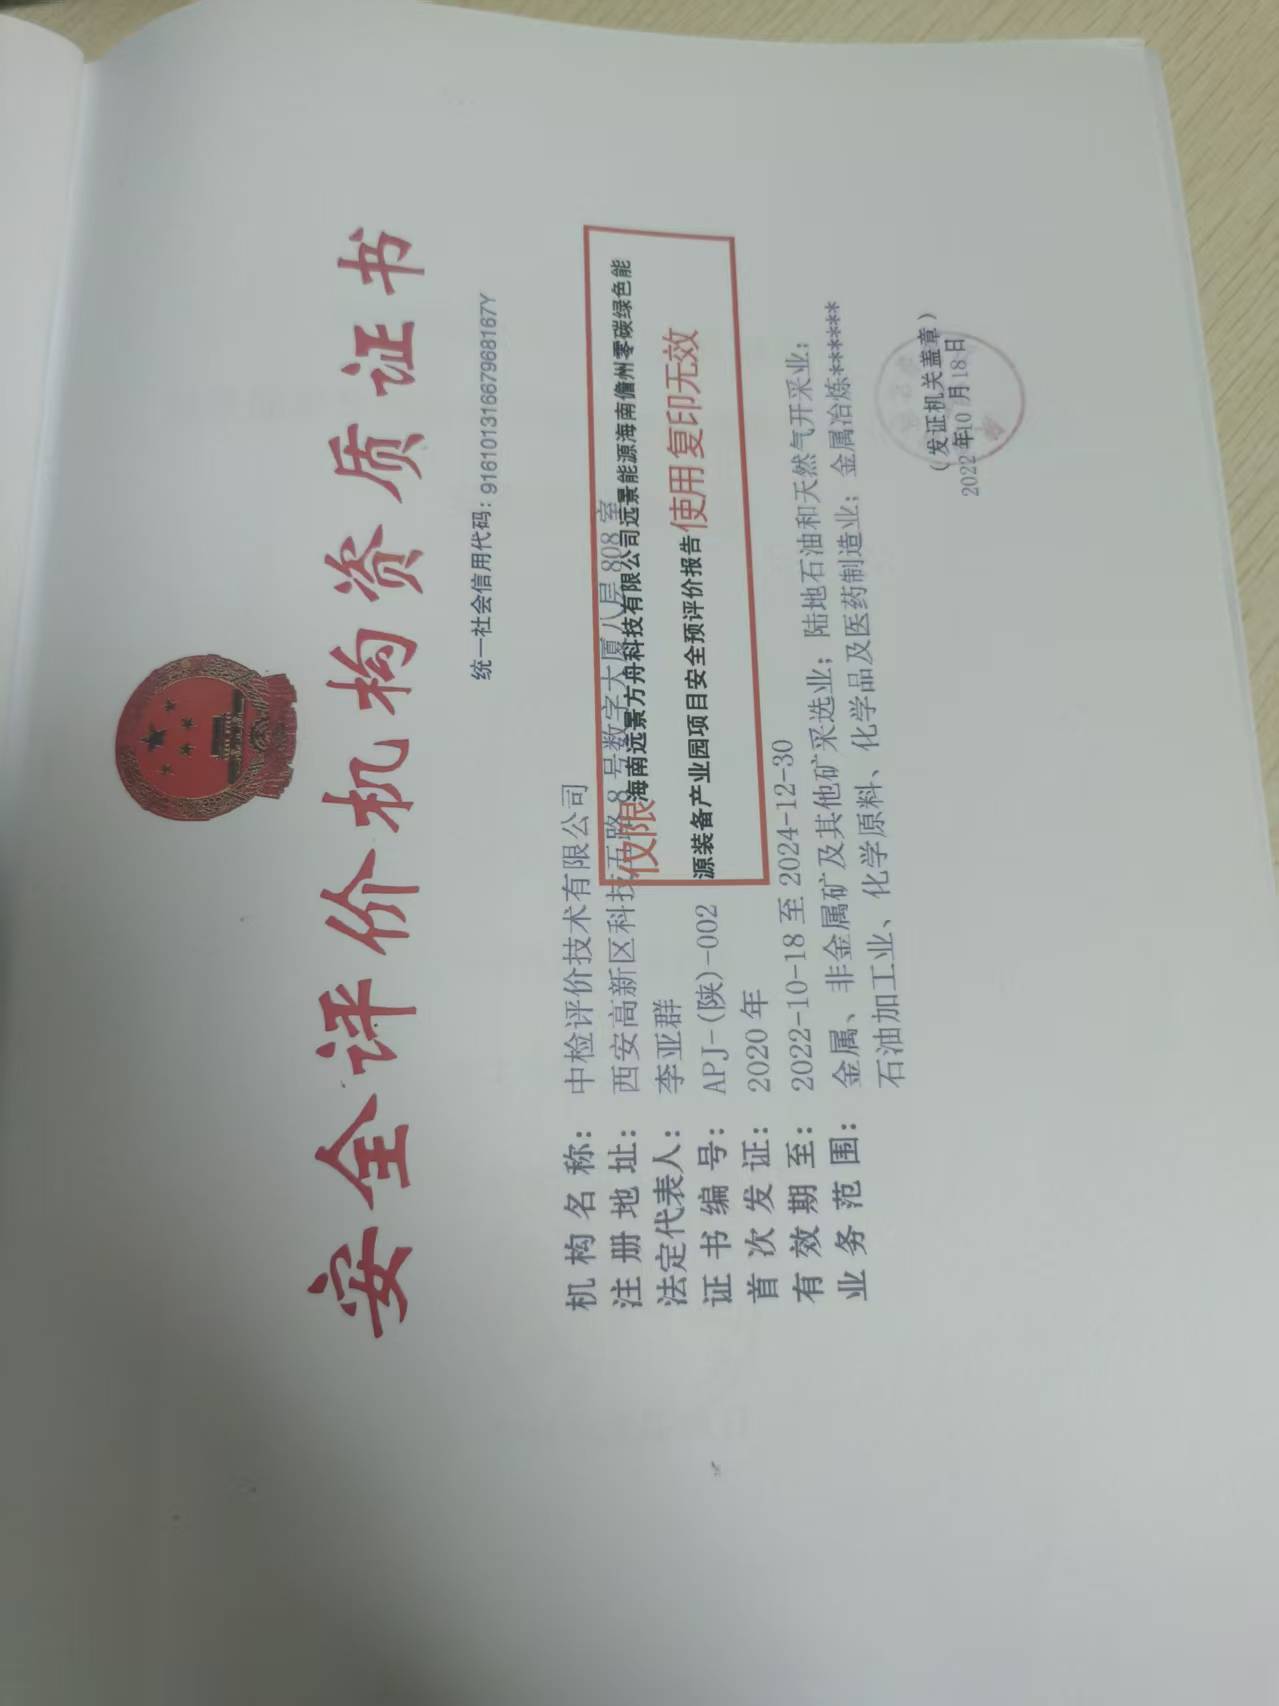 安全评价机构资质证书
统一社会信用代码：91610131667968167Y
机构名称：中检评价技术有限公司
注册地址：西安高新区科技五路8号数字大厦八层808室
法定代表人：李亚群
证书编号：APJ-(陕)-002
首次发证：2020年
有效期至：2022-10-18至2024-12-30
业务范围：金属、非金属矿及其他矿采选业；陆地石油和天然气开采业；
石油加工业、化学原料、化学品及医药制造业；金属冶炼******
仅限海南远景方舟科技有限公司远景能源海南儋州零碳绿色能
源装备产业园项目安全预评价报告使用复印无效
（发证机关盖章）
2022年10月18日